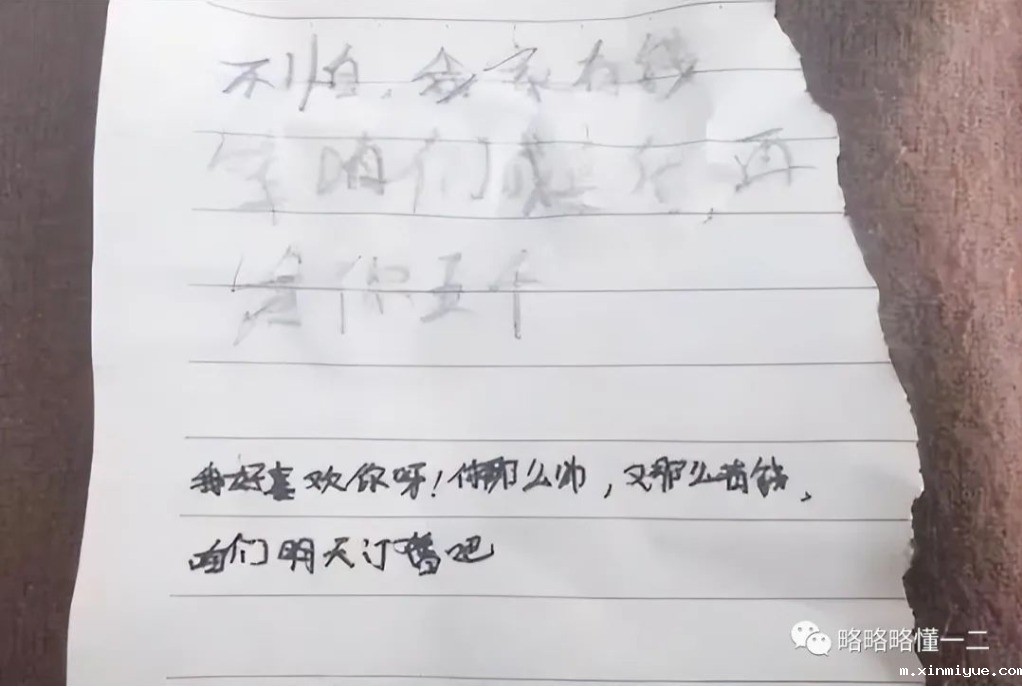 不 家有钱
咱们 再
你五千
我好喜欢你呀!你那么帅,又那么有钱,
咱们明天订婚吧
略略略懂一二
m.xinmiyue.com